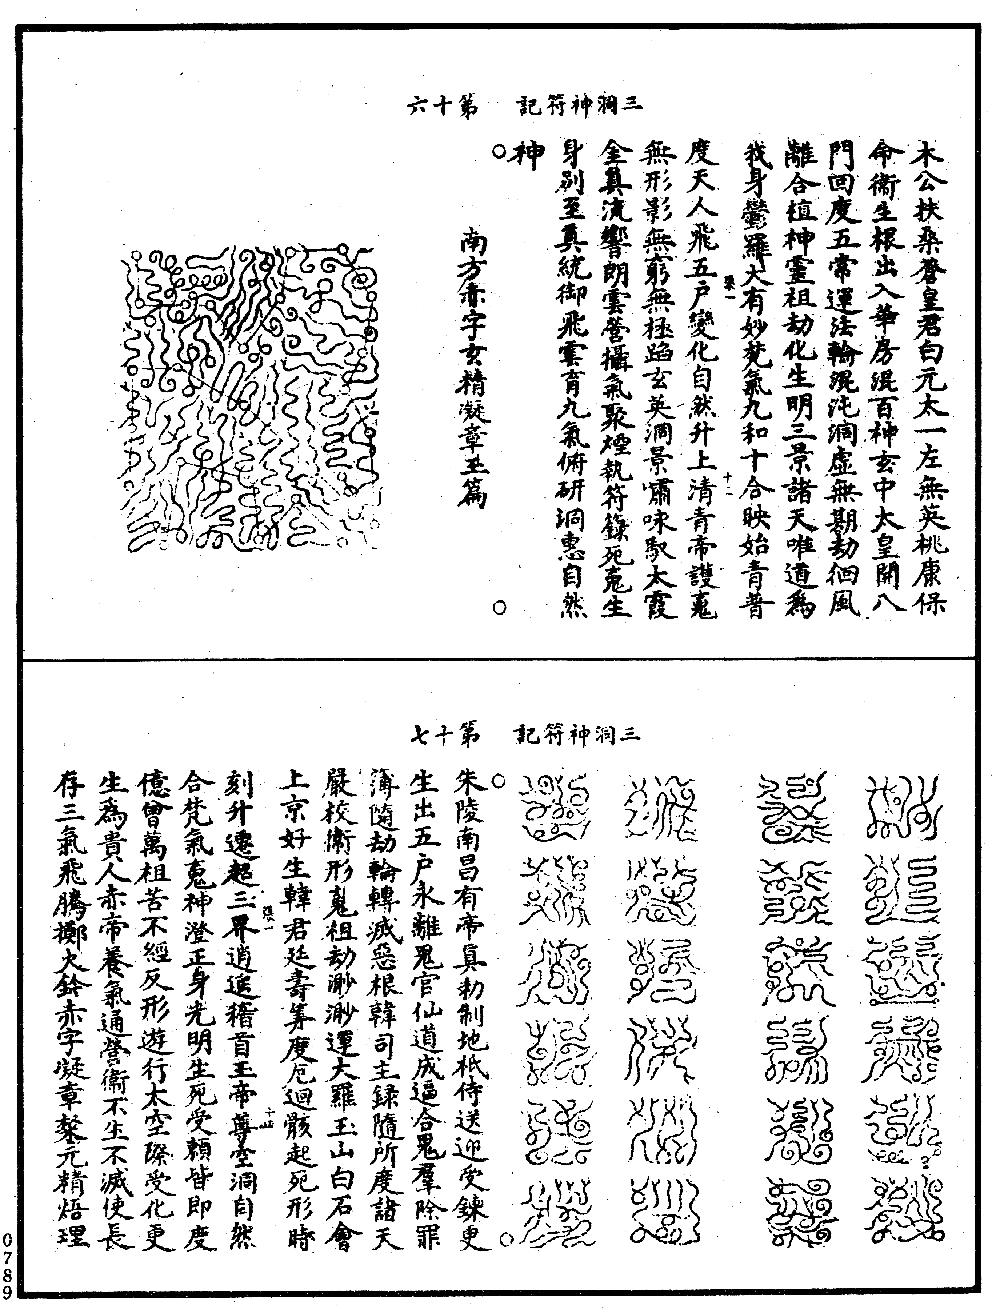 三洞神符記　第十六
木公扶桑蒼皇君白元太一左無英桃康保
命衞生根出入華房混百神玄中大皇開八
門回度五常運法輪混沌洞虛無期劫徊風
離合植神靈祖劫化生明三景諸天唯道爲
我身鬱羅大有妙梵氣九和十合映始青普
張一　十二
度天人飛五戶變化自然升上清青帝護䰟
無形影無窮無極蹈玄英洞景嘯咏馭太霞
金真流響朗雲營攝氣聚煙執符籙死䰟生
身別至真統御飛霄育九氣俯研洞惠自然
神
南方赤字玄精凝章玉篇
三洞神符記　第十七
朱陵南昌有帝真勑制地祇侍送迎受鍊更
生出五戶永離鬼官仙道成逼合鬼羣除罪
簿隨劫輪轉滅惡根韓司主録隨所度諸天
嚴校衞形䰟祖劫渺渺運大羅玉山白石會
上京好生韓君延壽筭度厄迴骸起死形時
張一　十四
刻升遷超三界逍遙稽首王帝尊空洞自然
合梵氣䰟神澄正身光明生死受賴皆即度
億曾萬祖苦不經反形遊行太空際受化更
生爲貴人赤帝養氣通營衞不生不滅使長
存三氣飛騰擲火鈴赤字凝章鏊元精焐理
0789